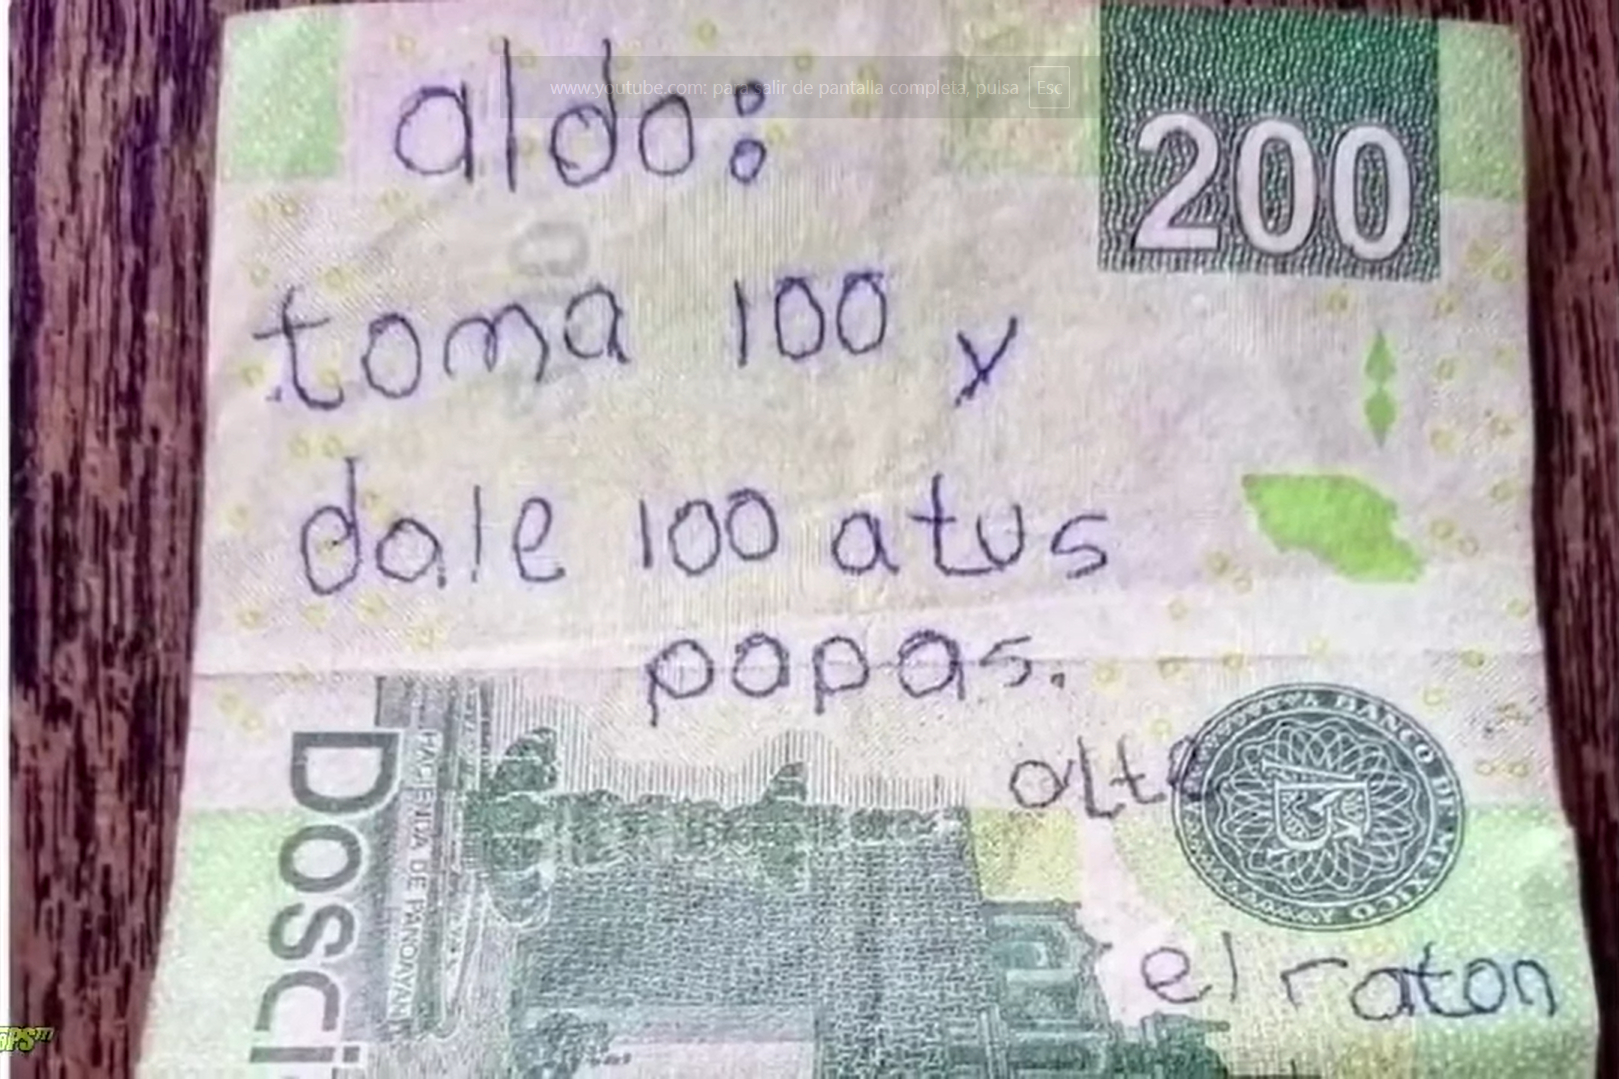 www.youtube.com: para salir de pantalla completa, pulsa Esc
aldo:
200
toma 100 y
dale 100 atus
papas.
atte
el raton
BANCO DE MEXICO
Dosci
HACIENDA DE PANOAYAN